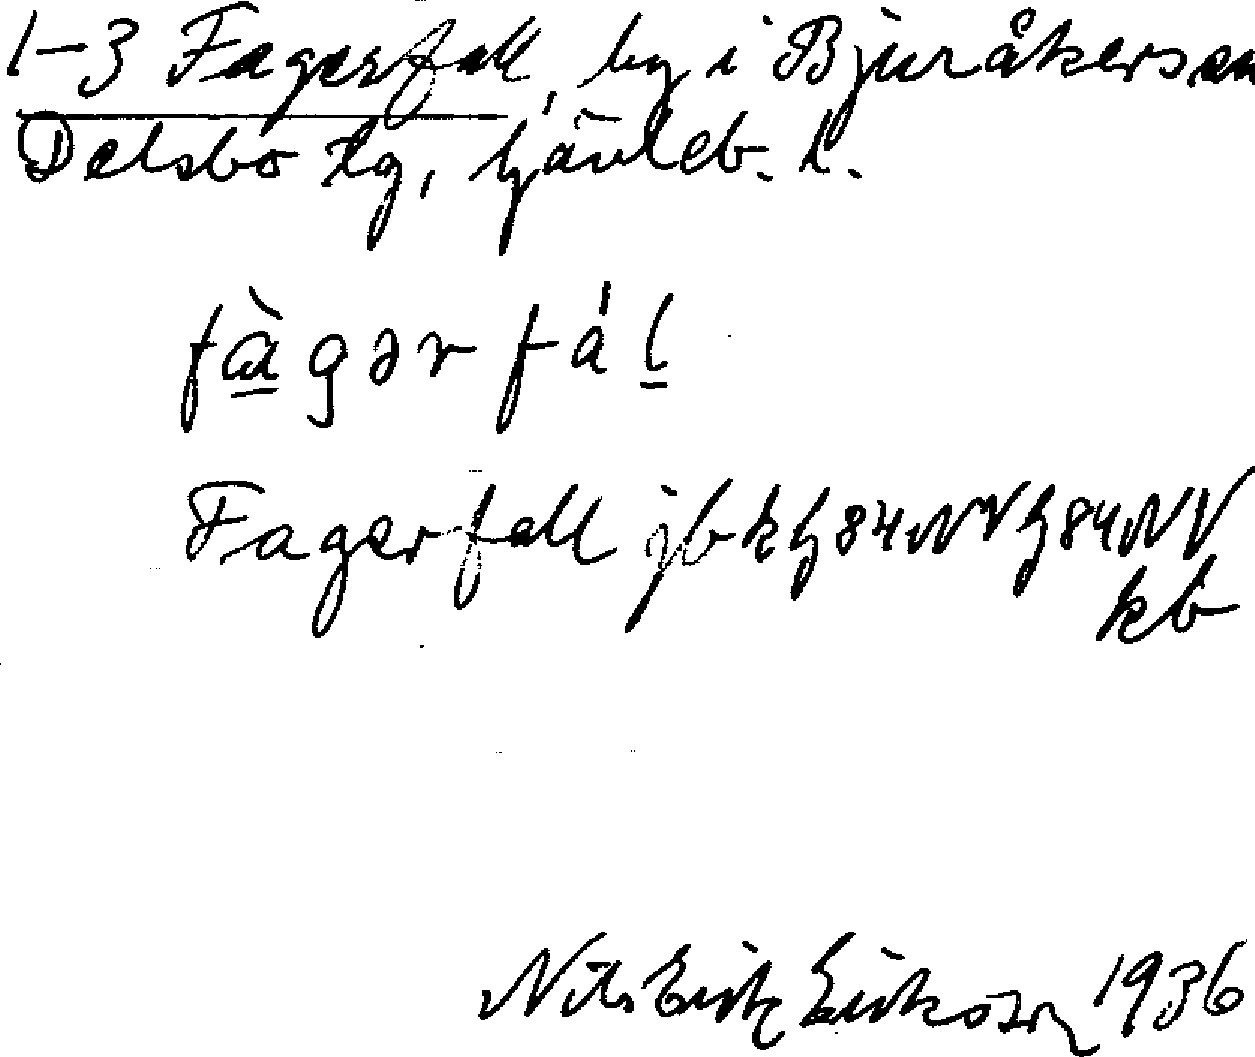 1-3 Fagerfall, by i Bjuråkers sn
Delsbo tg, Gävleb. l.
fàgər fál
Fagerfall jbkg 84 NV G 84 NV
kb
Nils Erik Eriksson 1936